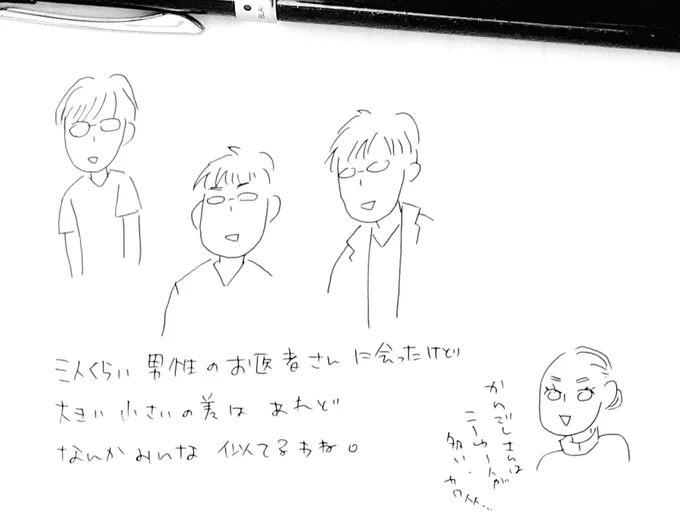 三人くらい 男性の お医者さん に会ったけど
大きい 小さいの 差は あれど
なんか みんな 似てるわね。
かんごしさんは
こーゆー人が
多い.
BLA